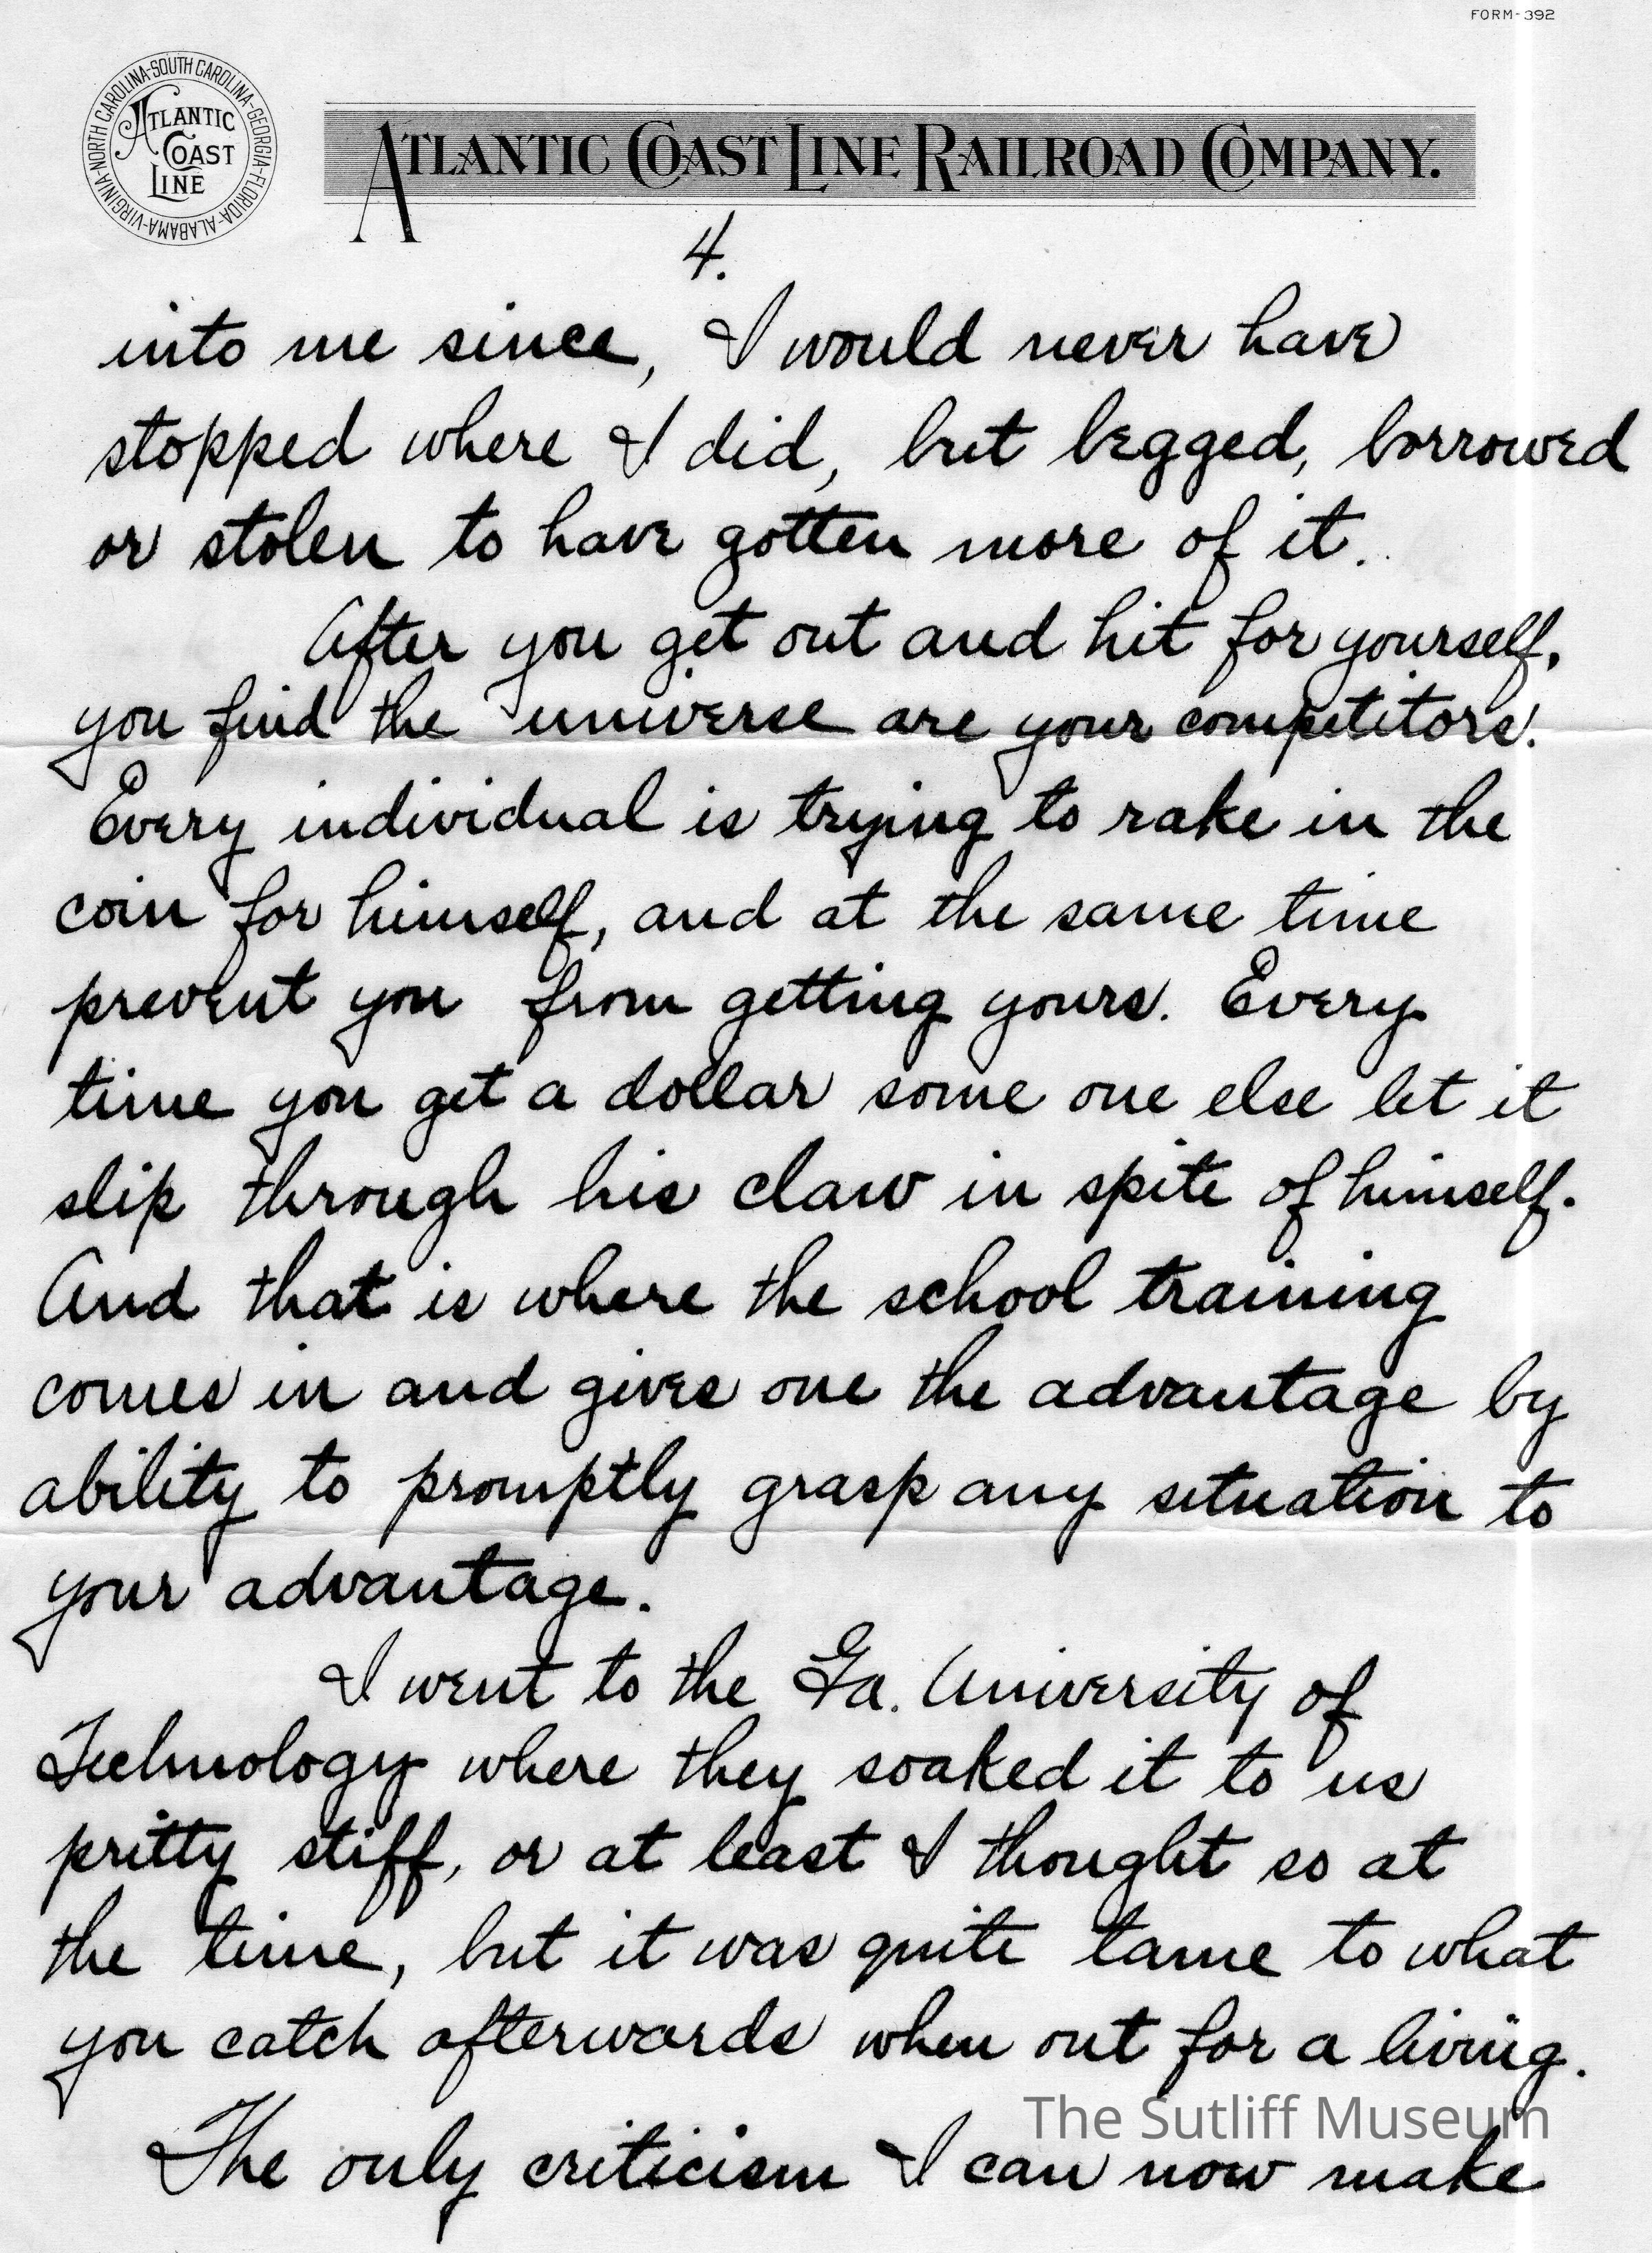 FORM-392
VIRGINIA-NORTH CAROLINA-SOUTH CAROLINA-GEORGIA-FLORIDA-ALABAMA-
ATLANTIC
COAST
LINE
ATLANTIC COAST LINE RAILROAD COMPANY.
4.
into me since, I would never have
stopped where I did, but begged, borrowed
or stolen to have gotten more of it.
After you get out and hit for yourself,
you find the universe are your competitors.
Every individual is trying to rake in the
coin for himself, and at the same time
prevent you from getting yours. Every
time you get a dollar some one else let it
slip through his claw in spite of himself.
And that is where the school training
comes in and gives one the advantage by
ability to promptly grasp any situation to
your advantage.
I went to the Ga. University of
Technology where they soaked it to us
pritty stiff, or at least I thought so at
the time, but it was quite tame to what
you catch afterwards when out for a living.
The Sutliff Museum
The only criticism I can now make